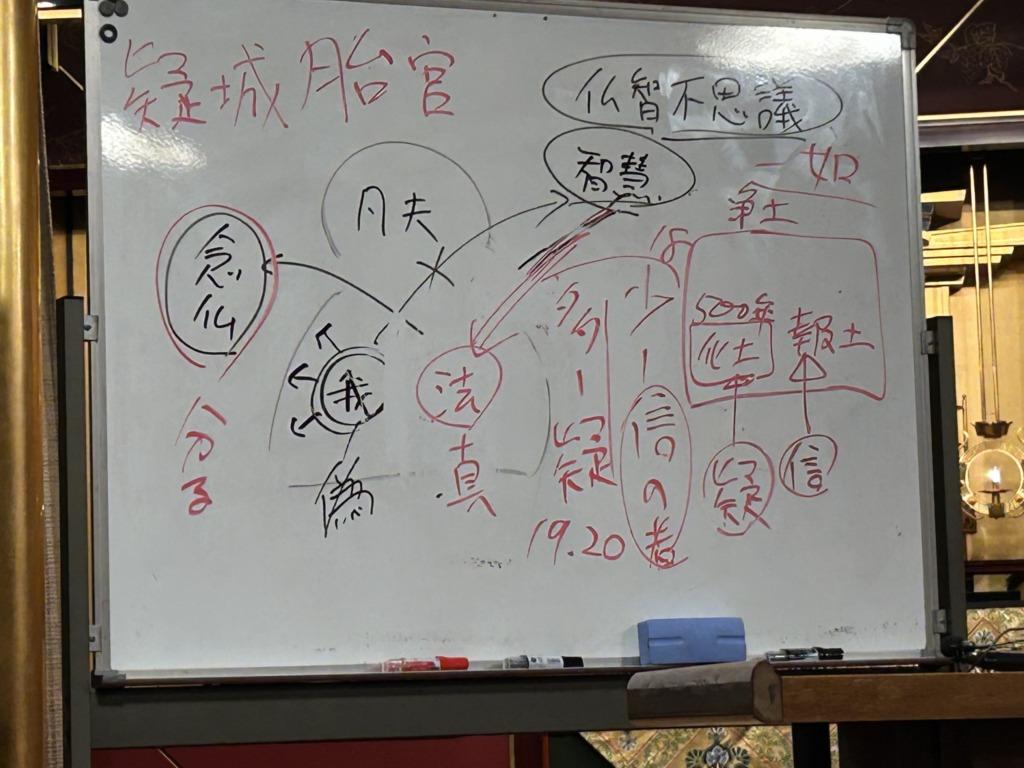 疑城胎宮
仏智不思議
智慧
一如
浄土
凡夫
念仏
分る
我
偽
法
真
18
少ー信の者
多ー疑
19.20
500年
化土
報土
疑
信